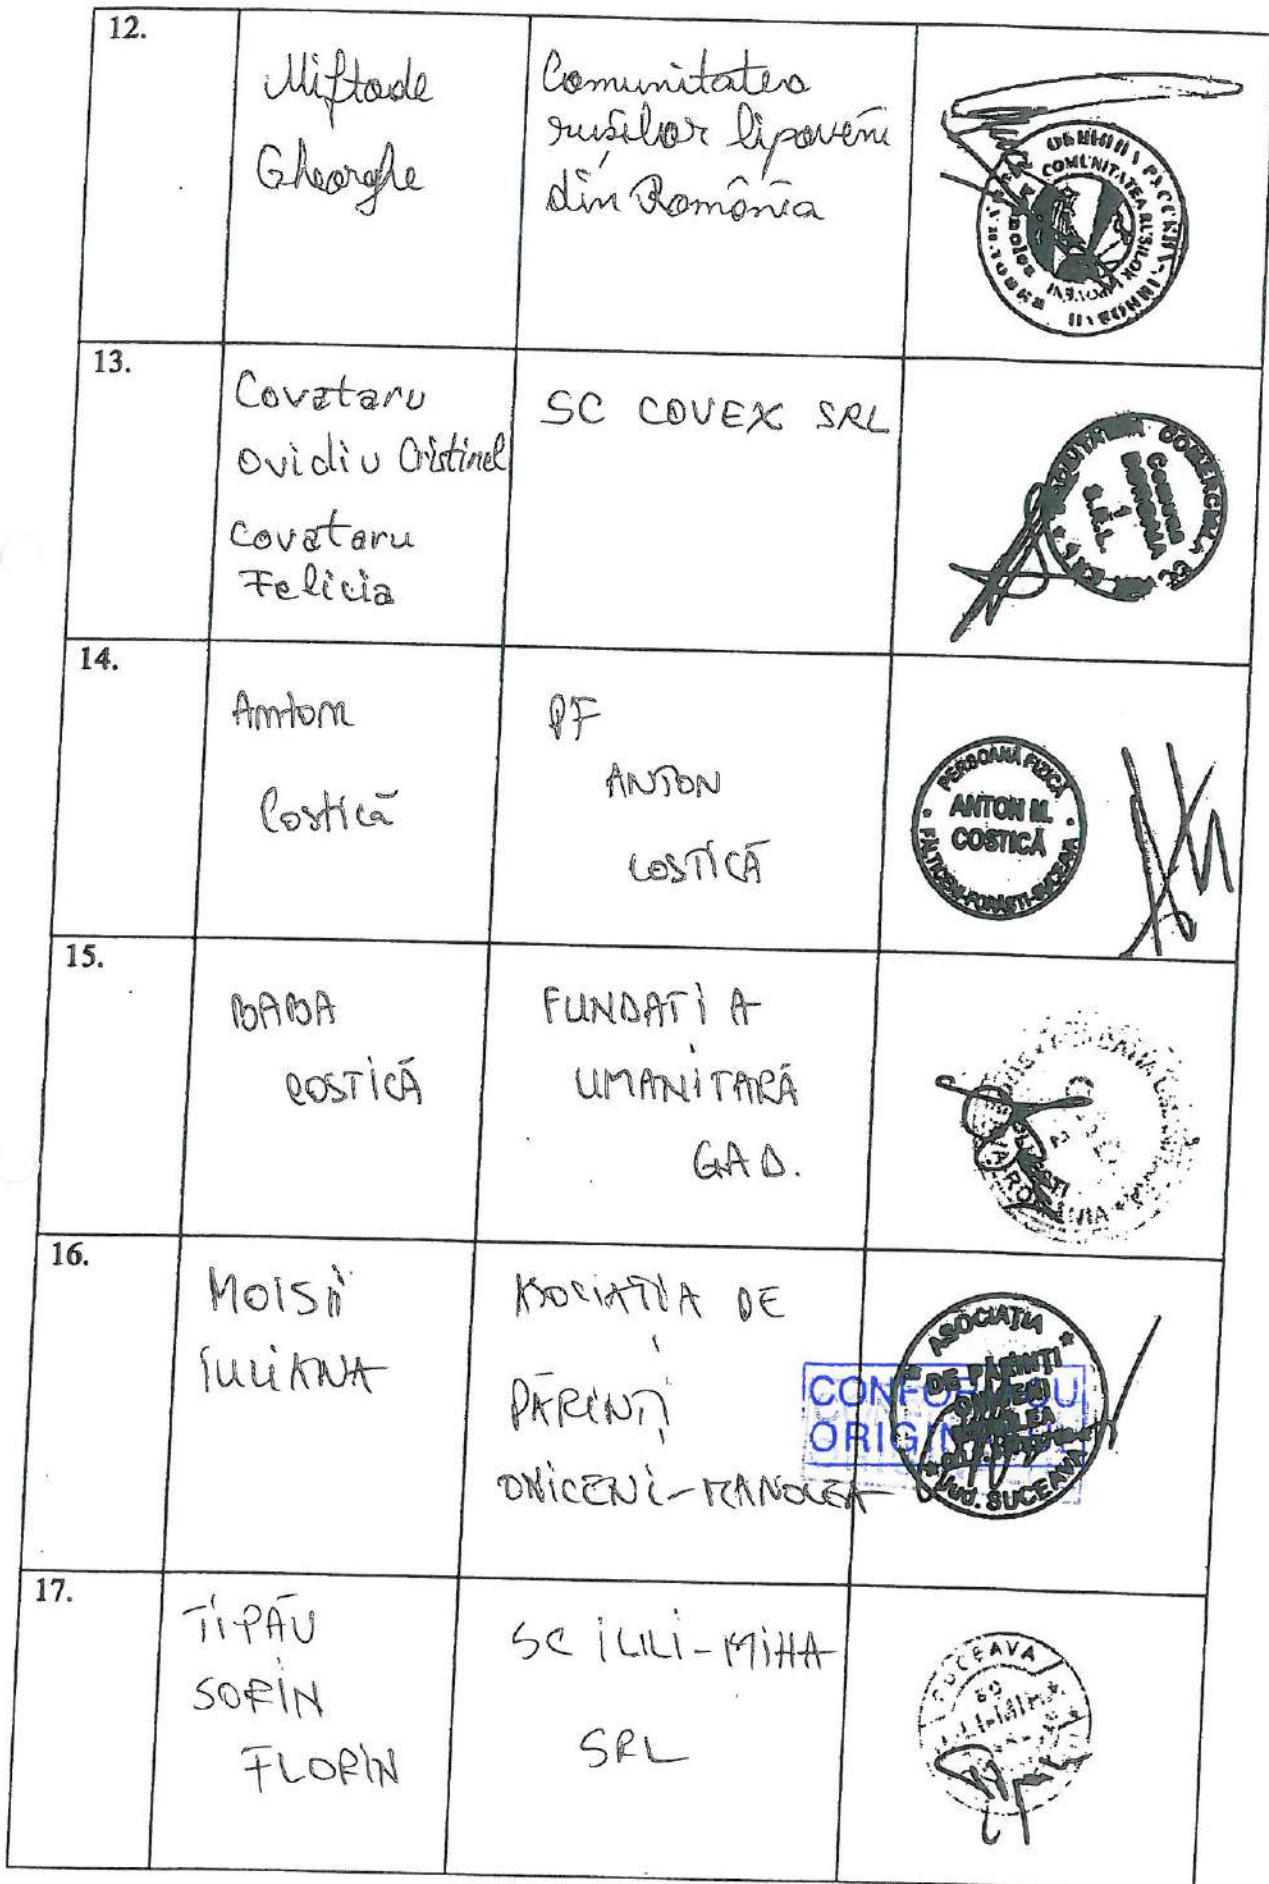 12.
Miftode
Gheorghe
Comunitatea
rusilor lipoveni
din România
COMUNITATEA RUSILOR LIPOVENI
13.
Covataru
Ovidiu Cristinel
Covataru
Felicia
SC COVEX SRL
COMERCIALA
S.R.L.
14.
Anton
Costică
PF
ANTON
COSTICĂ
PERSOANĂ FIZICĂ
ANTON M.
COSTICĂ
FĂLTICENI-FORĂŞTI-SUCEAVA
15.
BABA
COSTICĂ
FUNDATIA
UMANITARĂ
GAD.
16.
MOISII
IULIANA
ASOCIAȚIA DE
PĂRINȚI
ONICENI-MANOLEA
ASOCIAŢIA
DE PĂRINŢI
ONICENI
MANOLEA
Jud. SUCEAVA
CONFORM CU
ORIGINALUL
17.
TIPĂU
SORIN
FLORIN
SC ILILI-MIHA
SRL
SUCEAVA